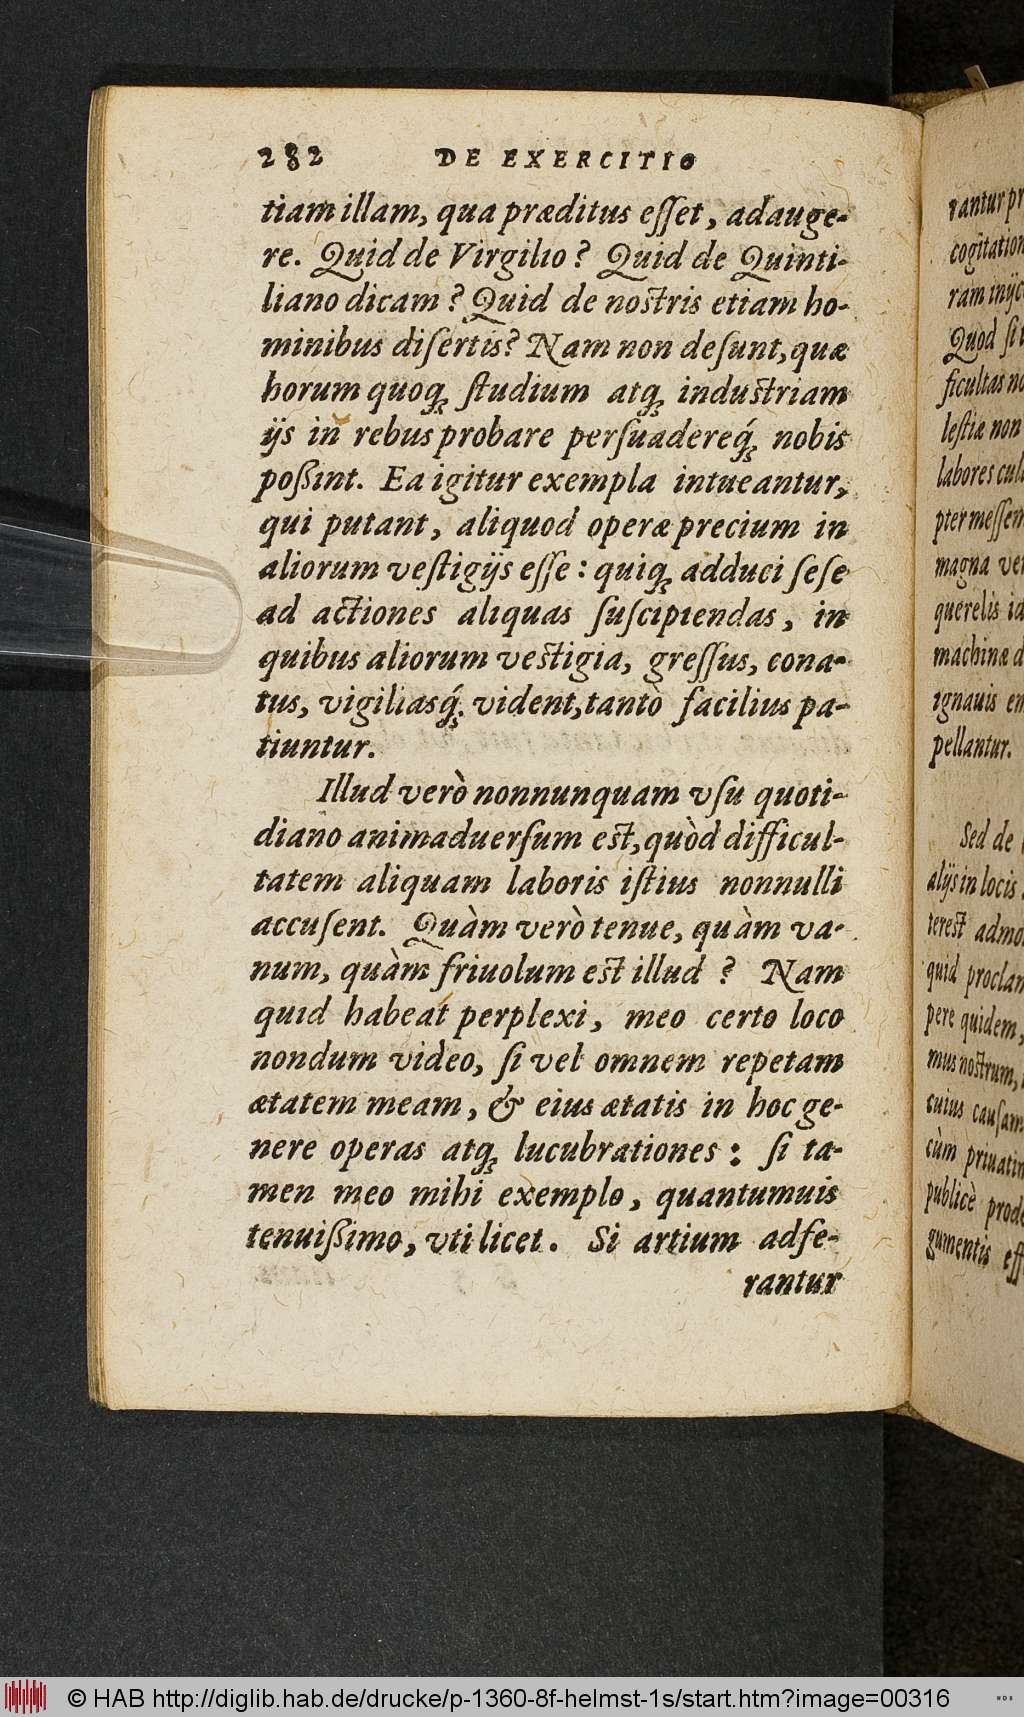 282 DE EXERCITIO
tiam illam, qua præditus eſſet, adauge-
re. Quid de Virgilio? Quid de Quinti-
liano dicam? Quid de noſtris etiam ho-
minibus diſertis? Nam non deſunt, quæ
horum quoqꝫ ſtudium atqꝫ induſtriam
ijs in rebus probare perſuadereq́ꝫ nobis
poßint. Ea igitur exempla intueantur,
qui putant, aliquod operæ precium in
aliorum veſtigijs eſſe: quiqꝫ adduci ſeſe
ad actiones aliquas ſuſcipiendas, in
quibus aliorum veſtigia, greſſus, cona-
tus, vigiliasq́ꝫ vident, tantò facilius pa-
tiuntur.
Illud verò nonnunquam vſu quoti-
diano animaduerſum eſt, quòd difficul-
tatem aliquam laboris iſtius nonnulli
accuſent. Quàm verò tenue, quàm va-
num, quàm friuolum eſt illud? Nam
quid habeat perplexi, meo certo loco
nondum video, ſi vel omnem repetam
ætatem meam, & eius ætatis in hoc ge-
nere operas atqꝫ lucubrationes: ſi ta-
men meo mihi exemplo, quantumuis
tenuißimo, vti licet. Si artium adfe-
rantur
rantur pr
cogitation
ram inijc
Quod ſi
ficultas no
leſtiæ non
labores cul
pter meſſem
magna ver
querelis id
machinæ d
ignauis en
pellantur.
Sed de
alijs in locis
tereſt admo
quid proclam
pere quidem,
mus noſtrum,
cuius cauſam
cùm priuatim
publicè prode
gumentis eff
© HAB http://diglib.hab.de/drucke/p-1360-8f-helmst-1s/start.htm?image=00316